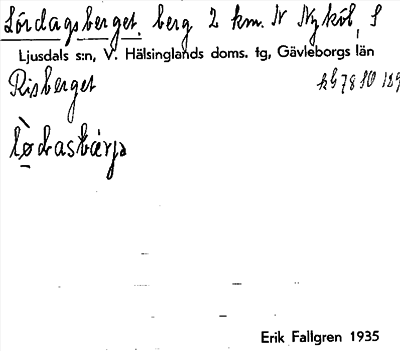 Lördagsberget, berg 2 km. N Nyköl, S
Ljusdals s:n, V. Hälsinglands doms. tg, Gävleborgs län
Risberget
Erik Fallgren 1935